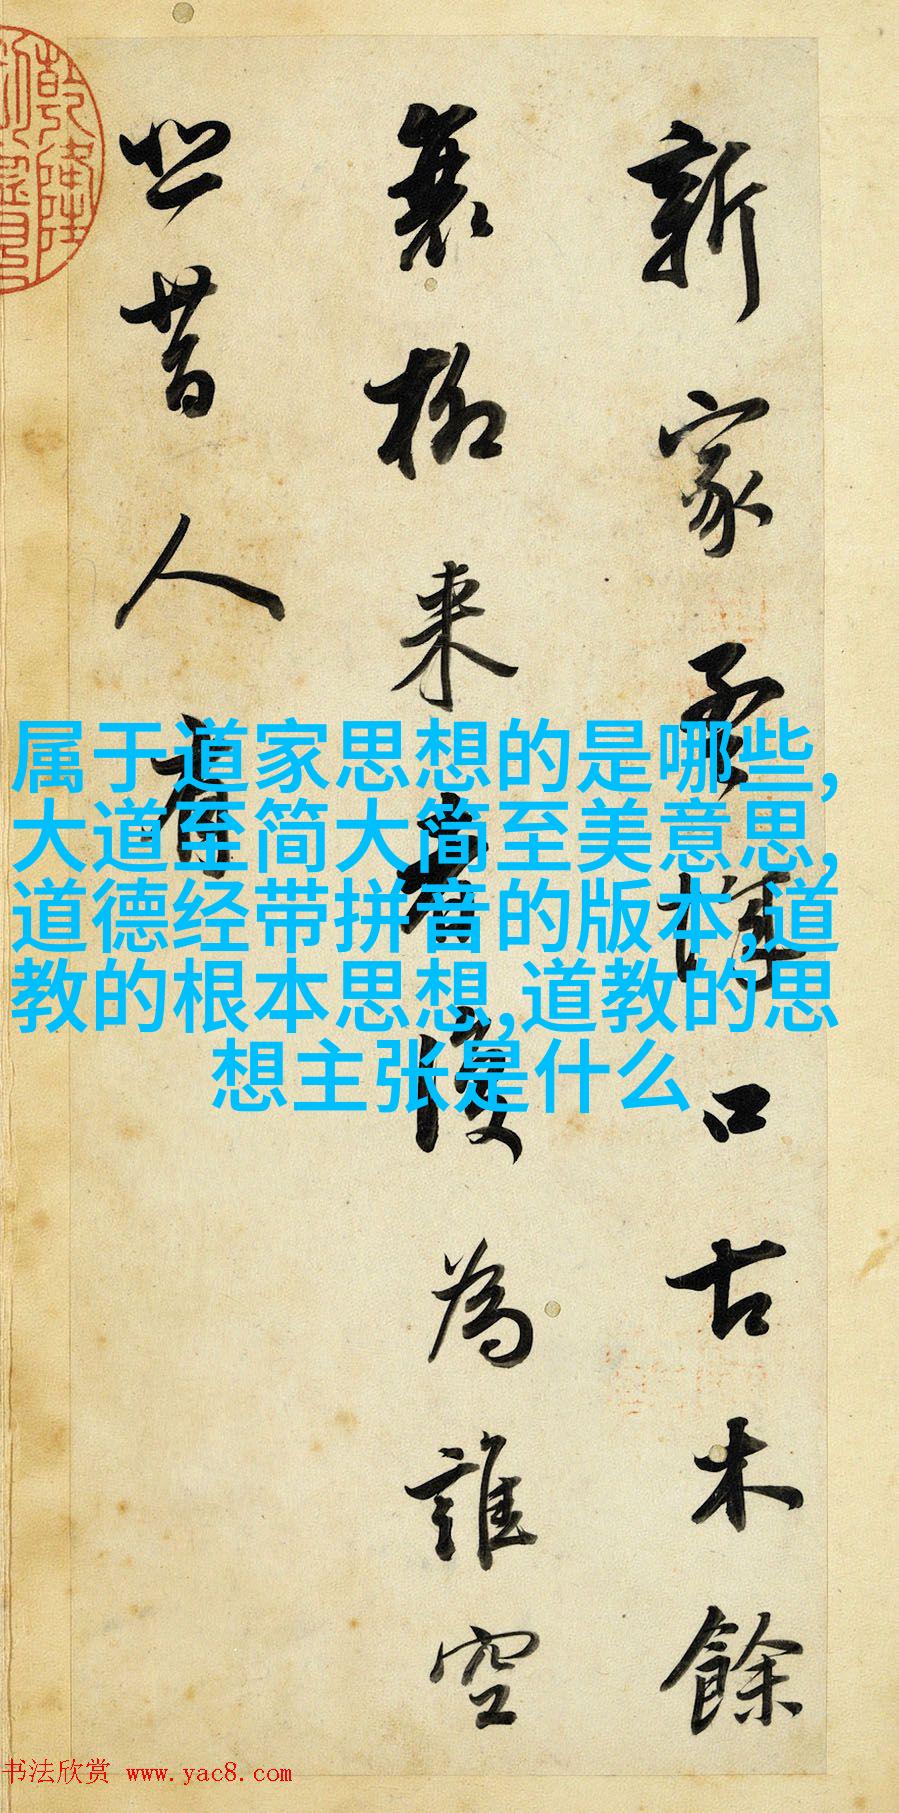 新家孟城口古木餘
衰柳來者復為誰空
悲昔人有
属于道家思想的是哪些,
大道至简大简至美意思,
道德经带拼音的版本,道
教的根本思想,道教的思
想主张是什么
书法欣赏 www.yac8.com